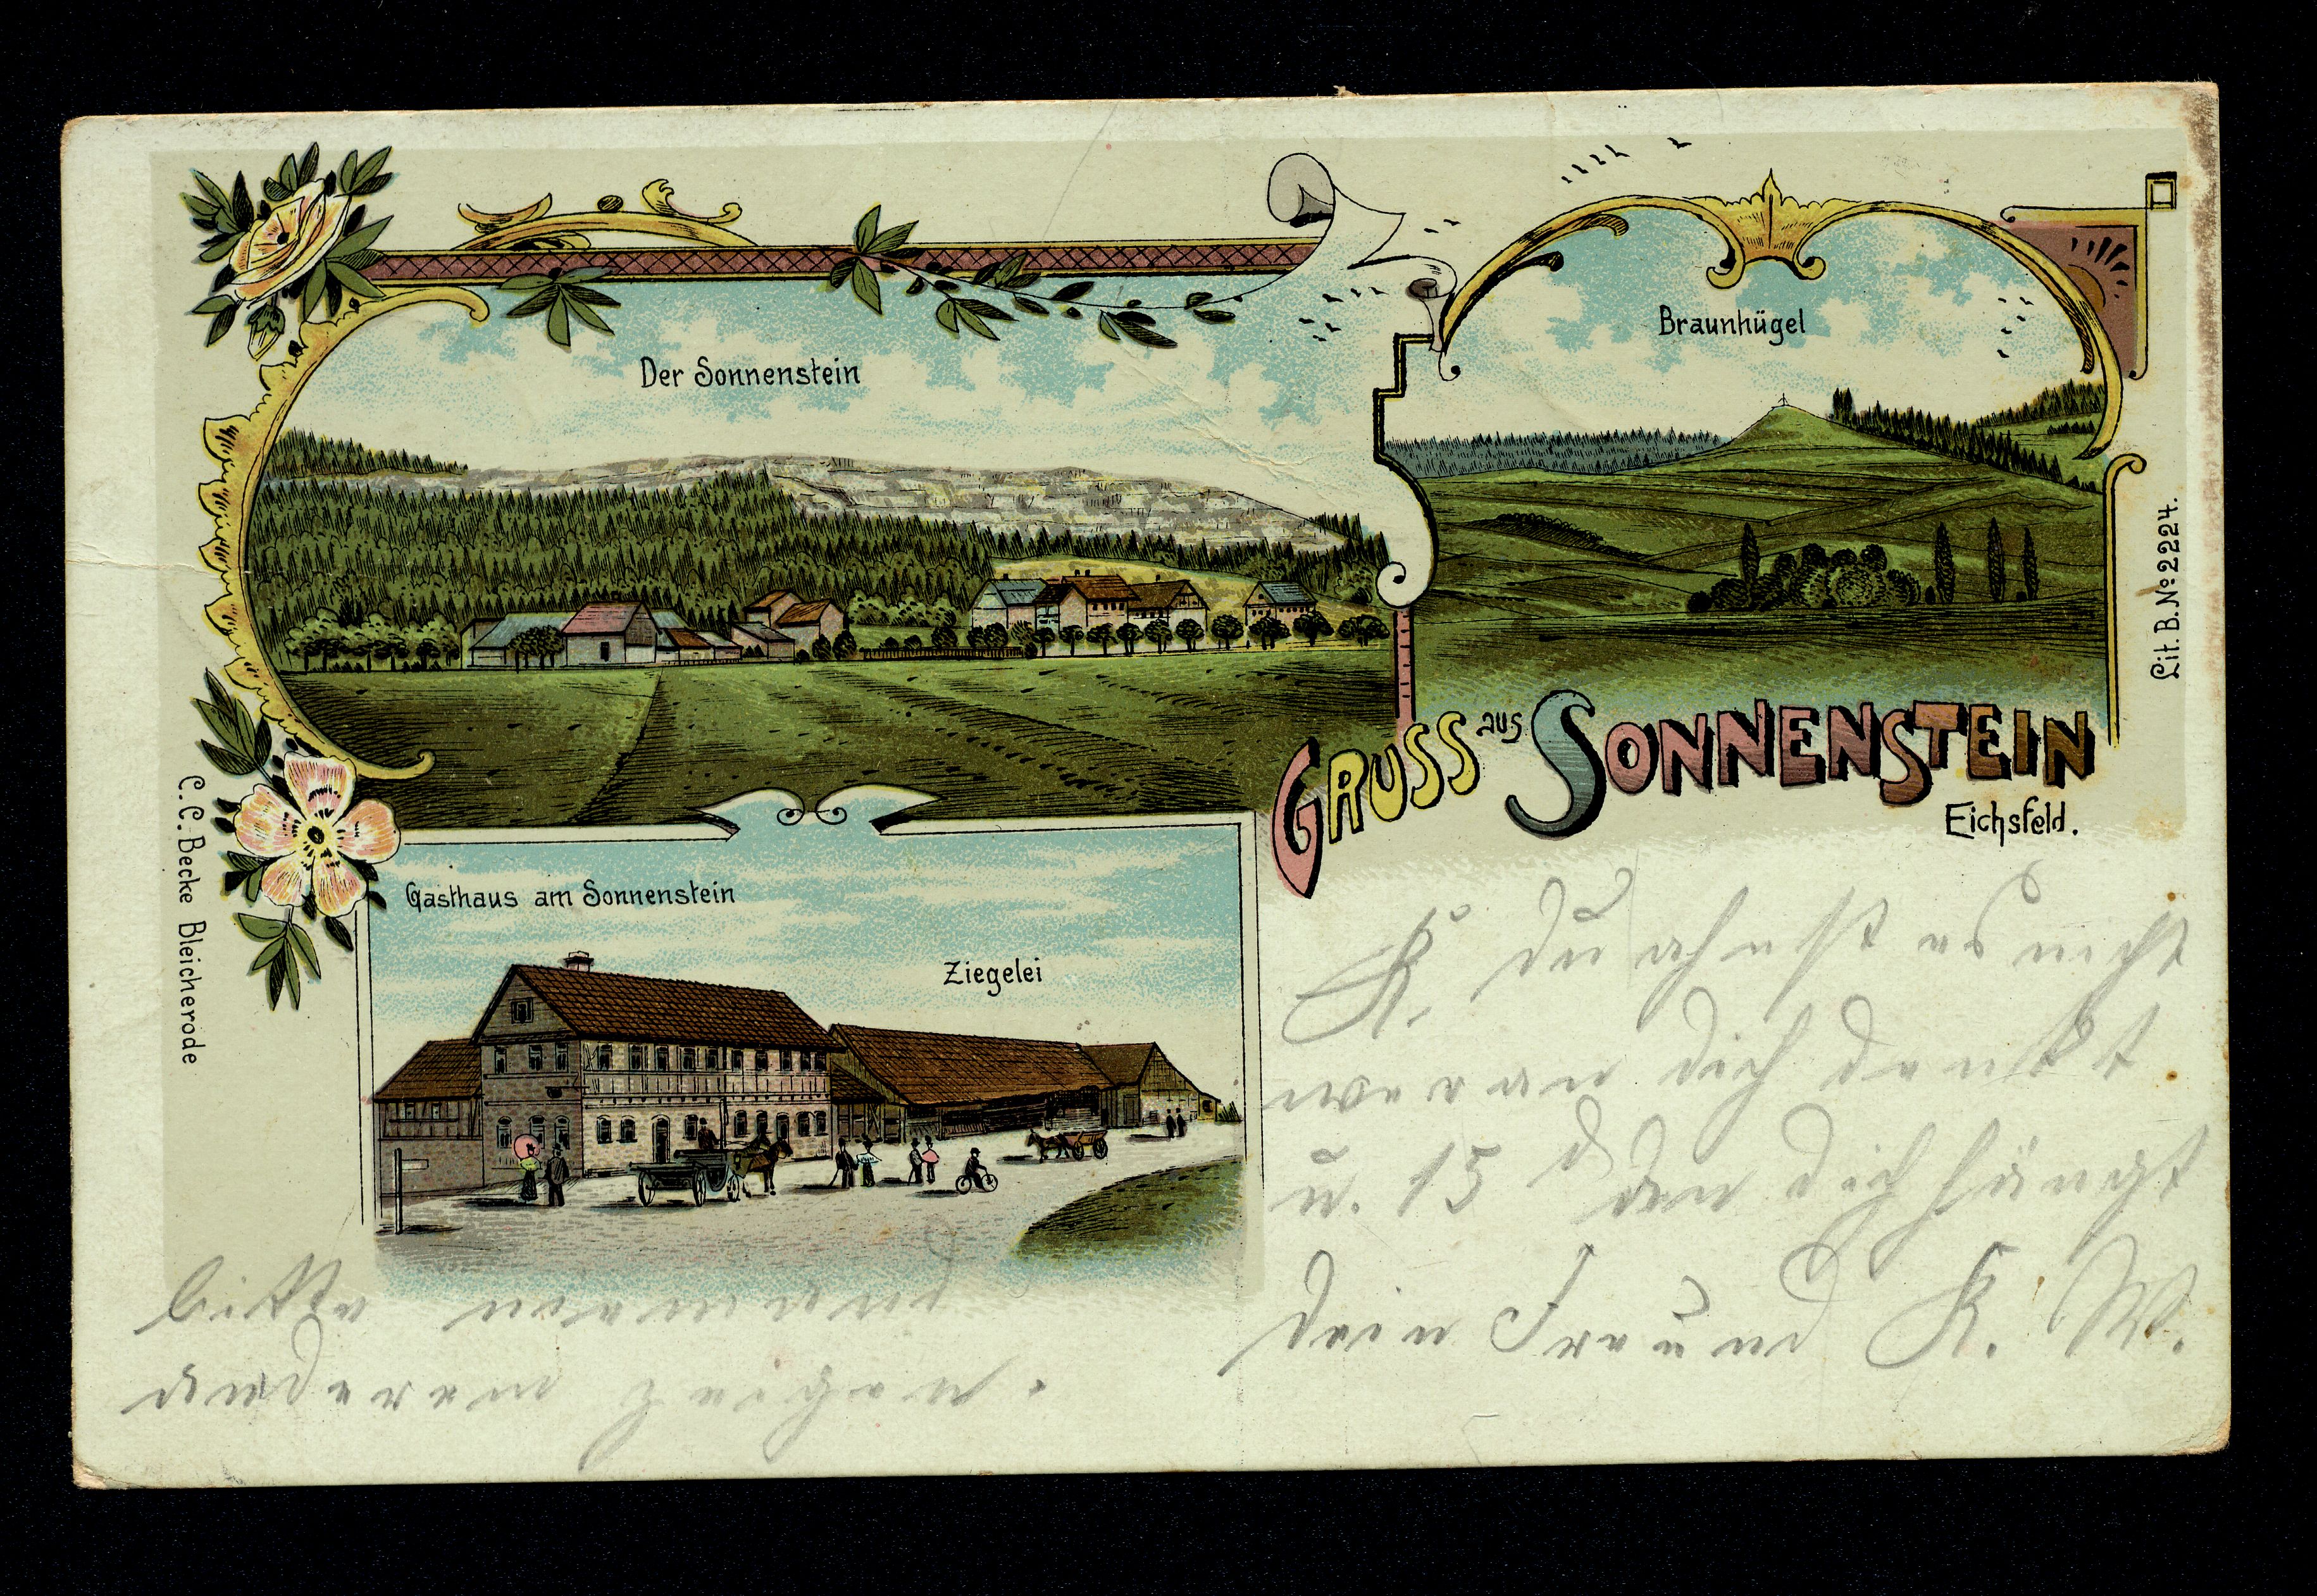 Der Sonnenstein
Braunhügel
Lit. B. No 2224.
GRUSS aus SONNENSTEIN
Eichsfeld.
C. C. Becke Bleicherode
Gasthaus am Sonnenstein
Ziegelei
K. du ahnst es nicht
wer an dich denkt
u. 15 den dich hängt
dein Freund K. W.
bitte niemand
anderem zeigen.